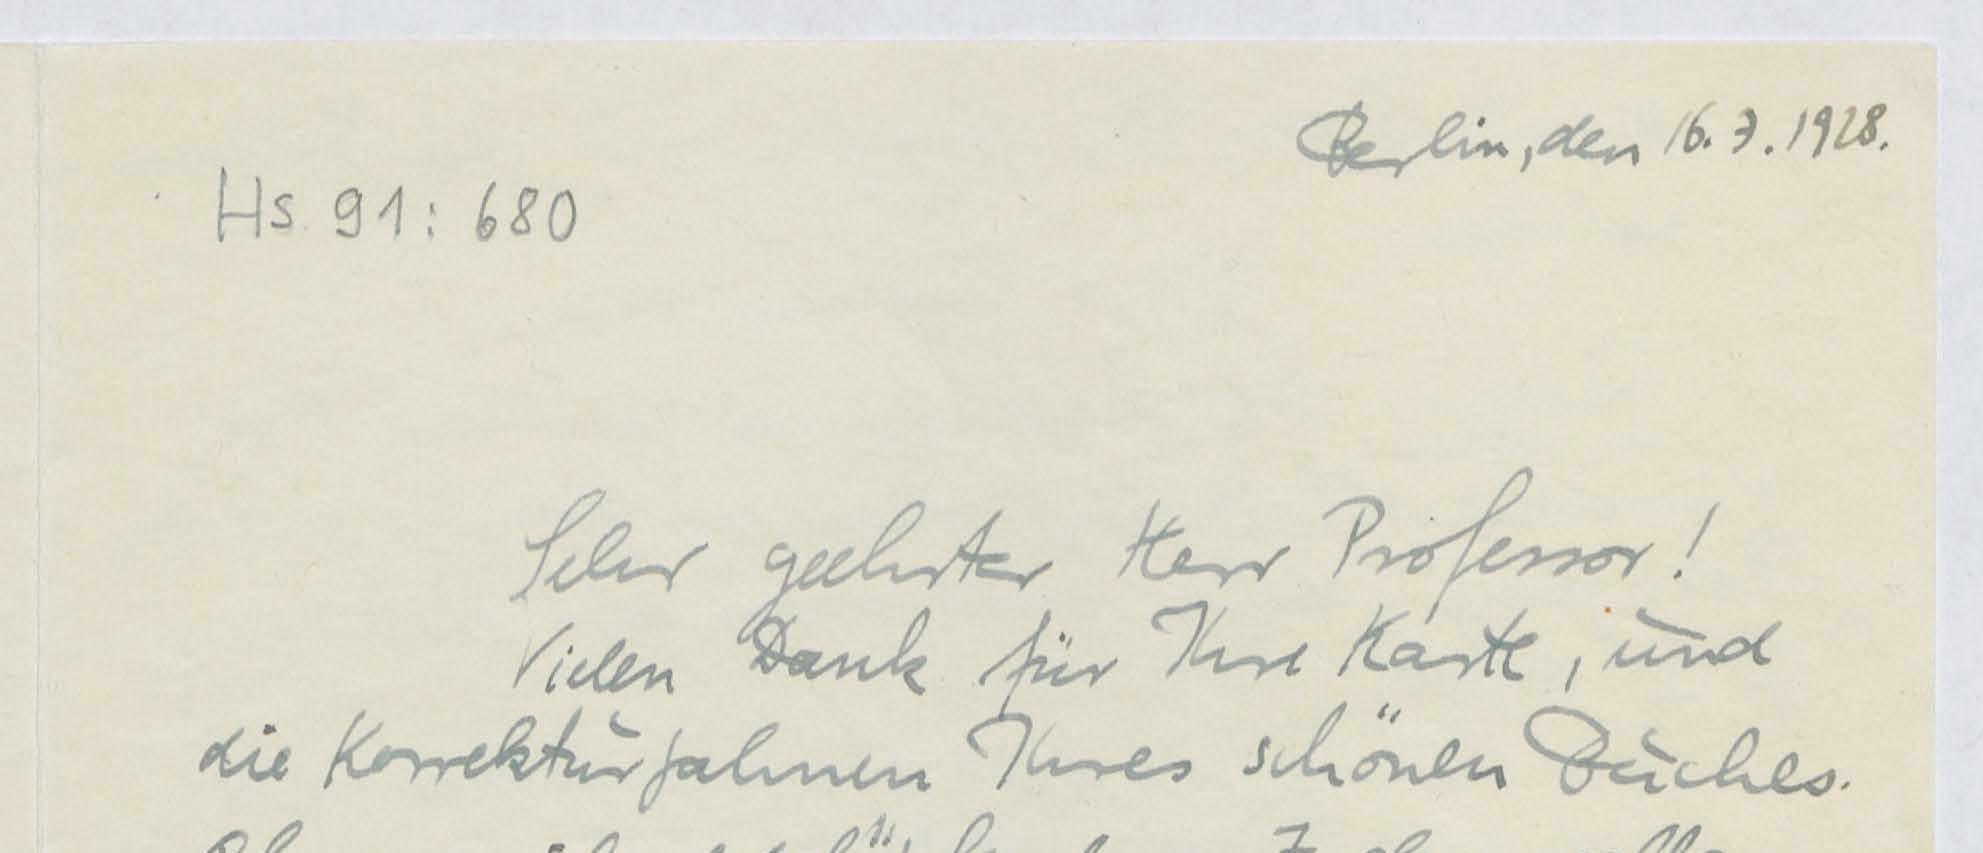 Berlin, den 16.7.1928.
Hs 91: 680
Sehr geehrter Herr Professor!
Vielen Dank für Ihre Karte, und
die Korrekturfahnen Ihres schönen Buches.